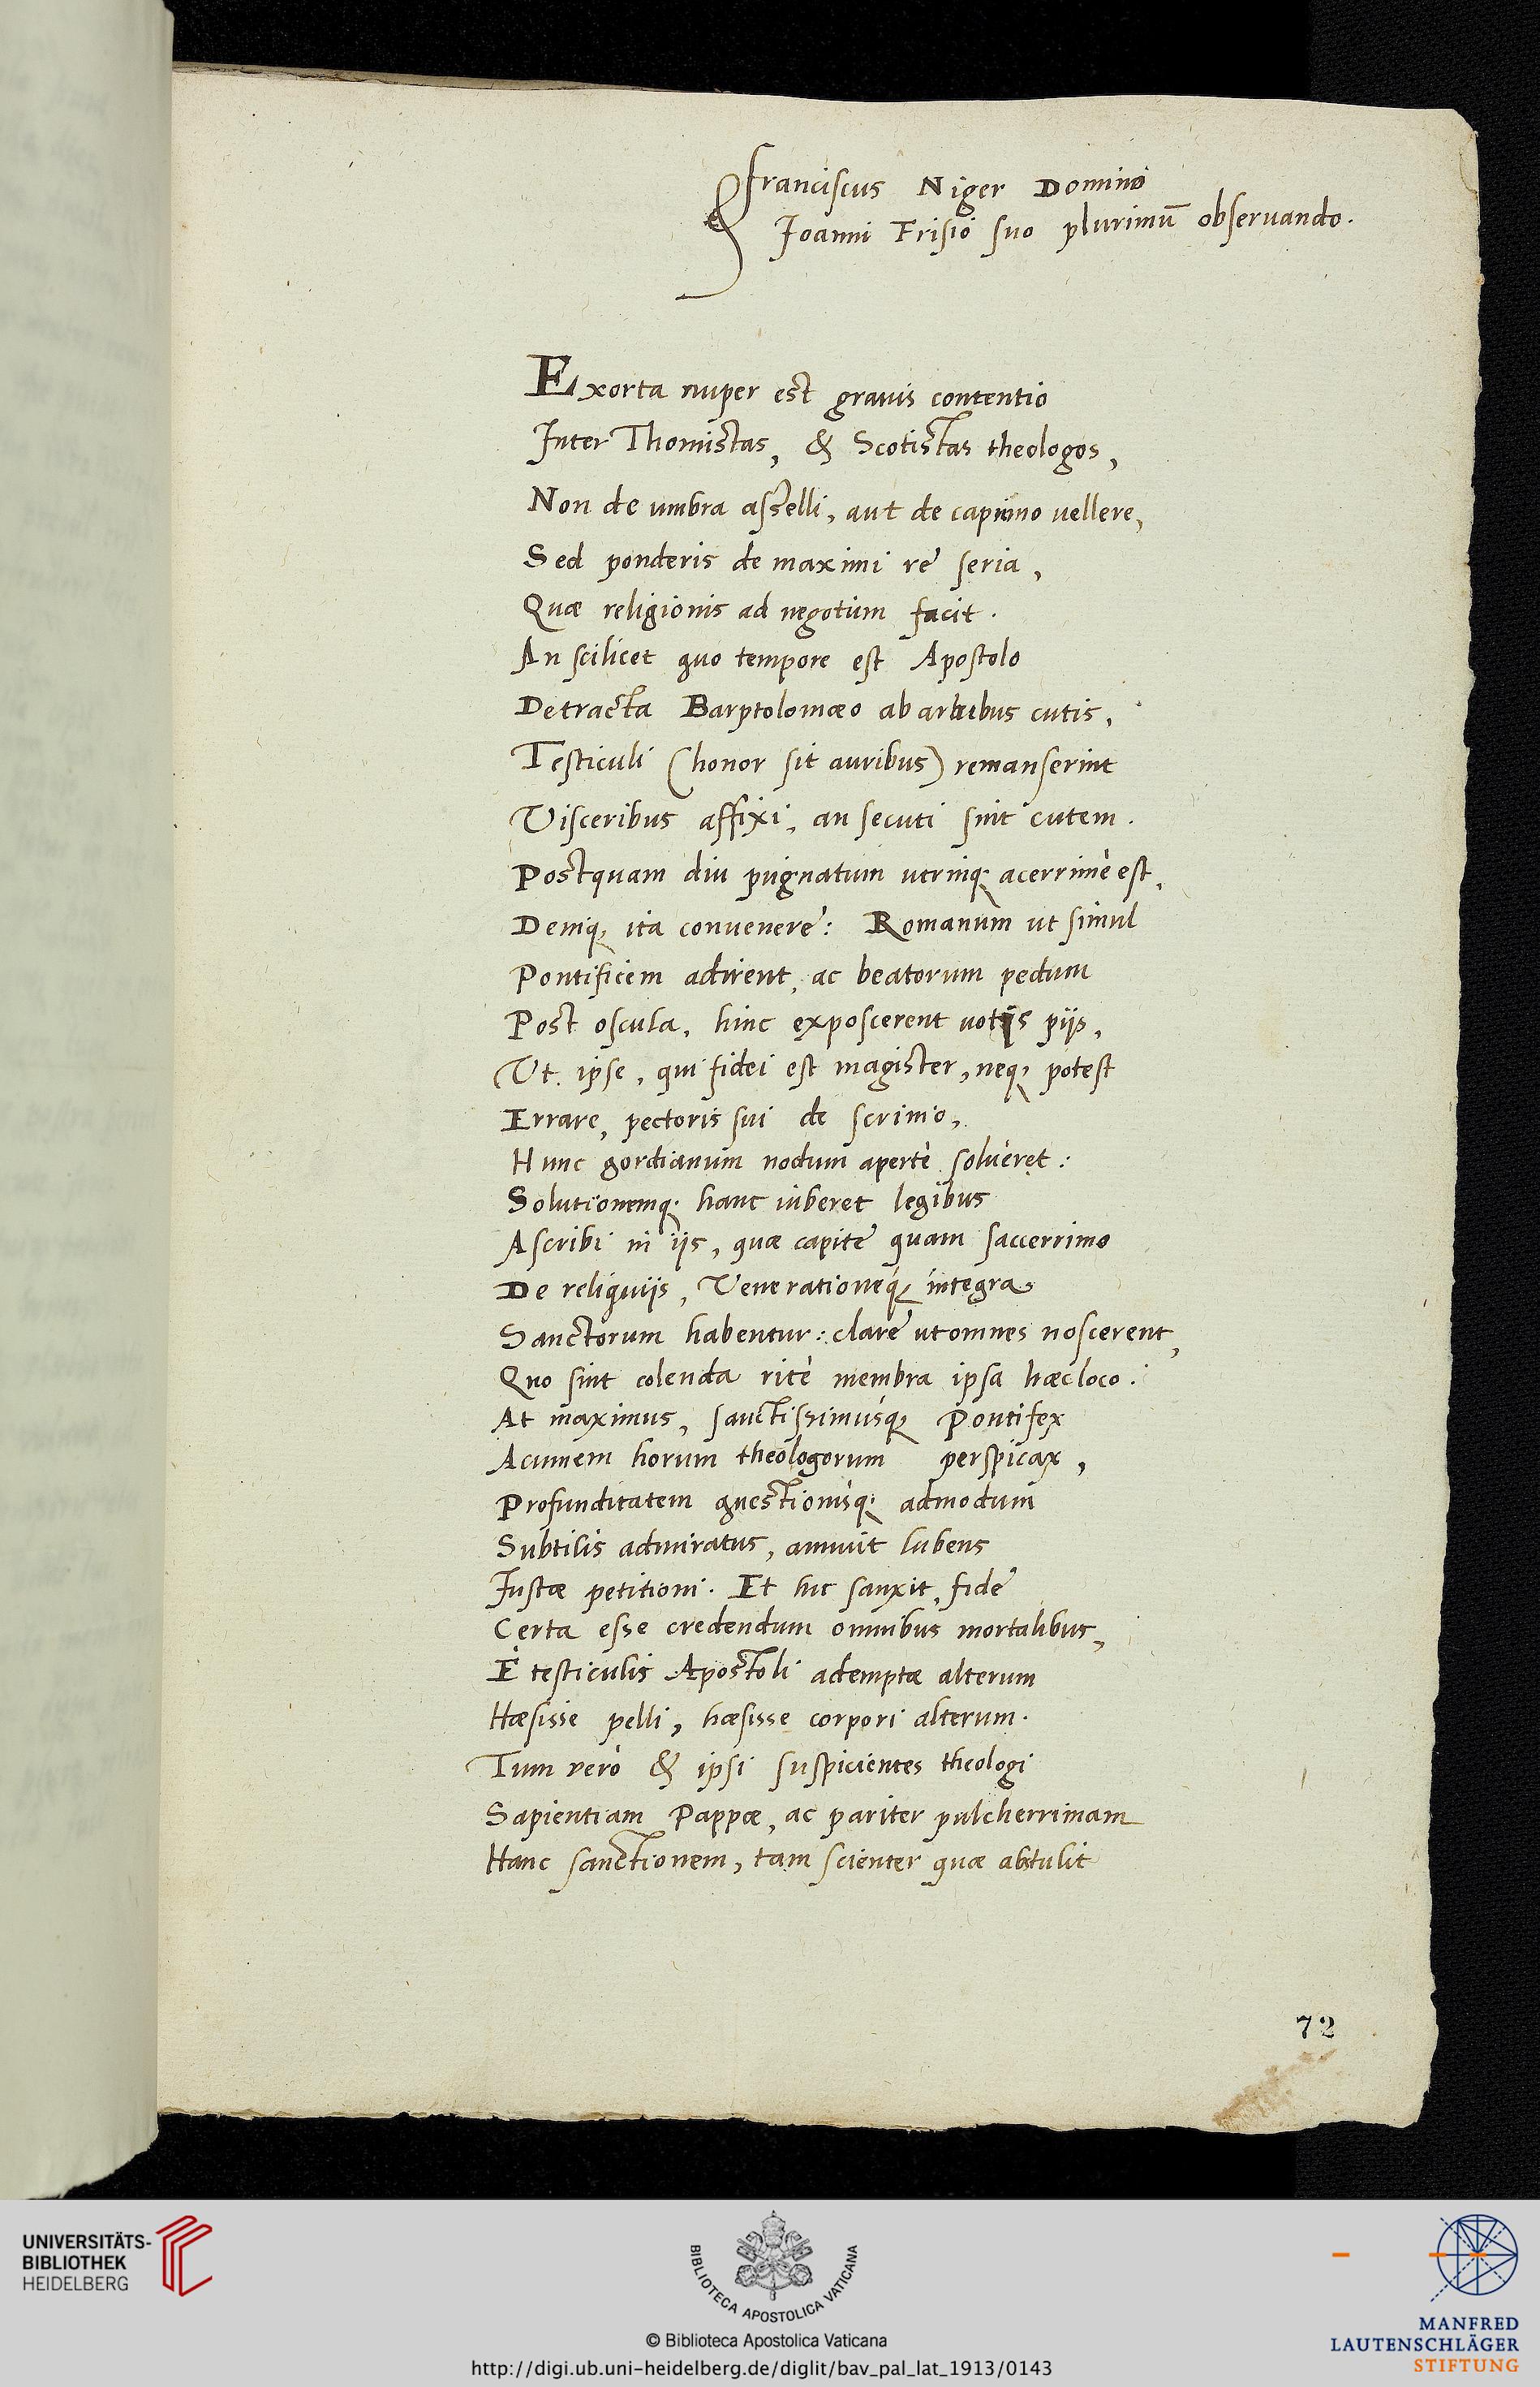 Franciscus Niger Domino
Joanni Frisio suo plurimū obseruando.
Exorta nuper est grauis contentio
Inter Thomistas, & Scotistas theologos,
Non de umbra asselli, aut de caprino vellere,
Sed ponderis de maximi re seria,
Quæ religionis ad negotium facit.
An scilicet quo tempore est Apostolo
Detracta Barptolomæo ab artubus cutis,
Testiculi (honor sit auribus) remanserint
Visceribus affixi, an secuti sint cutem.
Postquam diu pugnatum utrinq; acerrimè est,
Deniq; ita conuenere: Romanum ut simul
Pontificem adirent, ac beatorum pedum
Post oscula, hinc exposcerent uotis pijs,
Ut ipse, qui fidei est magister, neq; potest
Errare, pectoris sui de scrinio,
Hunc gordianum nodum apertè solueret:
Solutionemq; hanc iuberet legibus
Ascribi in ijs, quæ capite quam saccerrimo
De reliquijs, Venerationeq; integra
Sanctorum habentur: clare ut omnes noscerent,
Quo sint colenda ritè membra ipsa hæc loco.
At maximus, sanctissimusq; Pontifex
Acumem horum theologorum perspicax,
Profunditatem questionisq; admodum
Subtilis admiratus, annuit lubens
Justæ petitioni. Et hic sanxit, fide
Certa esse credendum omnibus mortalibus,
E testiculis Apostoli ademptæ alterum
Hæsisse pelli, hæsisse corpori alterum.
Tum verò & ipsi suspicientes theologi
Sapientiam Pappæ, ac pariter pulcherrimam
Hanc sanctionem, tam scienter quæ abstulit
72
UNIVERSITÄTS-
BIBLIOTHEK
HEIDELBERG
BIBLIOTECA APOSTOLICA VATICANA
© Biblioteca Apostolica Vaticana
http://digi.ub.uni-heidelberg.de/diglit/bav_pal_lat_1913/0143
MANFRED
LAUTENSCHLÄGER
STIFTUNG